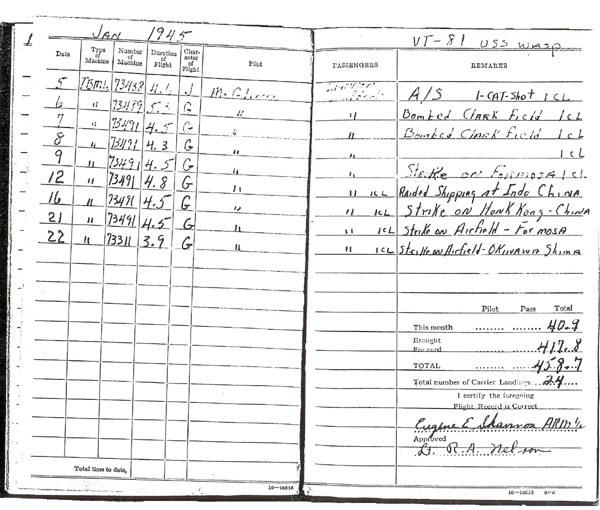 1 JAN 1945
Date Type of Machine Number of Machine Duration of Flight Character of Flight Pilot
5 73438 4.1 J
6 " 5.3 G "
7 " 73491 4.5 G "
8 " 73491 4.3 G "
9 " 73491 4.5 G "
12 " 73491 4.8 G "
16 " 73491 4.5 G "
21 " 73491 4.5 G "
22 " 73311 3.9 G "
Total time to date,
16—18618
VT-81 USS WASP
PASSENGERS REMARKS
A/S 1-CAT-Shot 1 CL
" Bombed Clark Field 1 CL
" Bombed Clark Field 1 CL
" 1 CL
" Strike on Formosa 1 CL
" 1CL Raided Shipping at Indo China
" 1CL Strike on Honk Kong-China
" 1CL Strike on Airfield - Formosa
" 1CL Strike on Airfield-Okinawa Shima
Pilot Pass Total
This month 40.9
Brought Forward 417.8
TOTAL 458.7
Total number of Carrier Landings 24
I certify the foregoing
Flight Record is Correct
Eugene E Shannon ARM 1/c
Approved
Lt. R.A. Nelson
16—18618 GPO